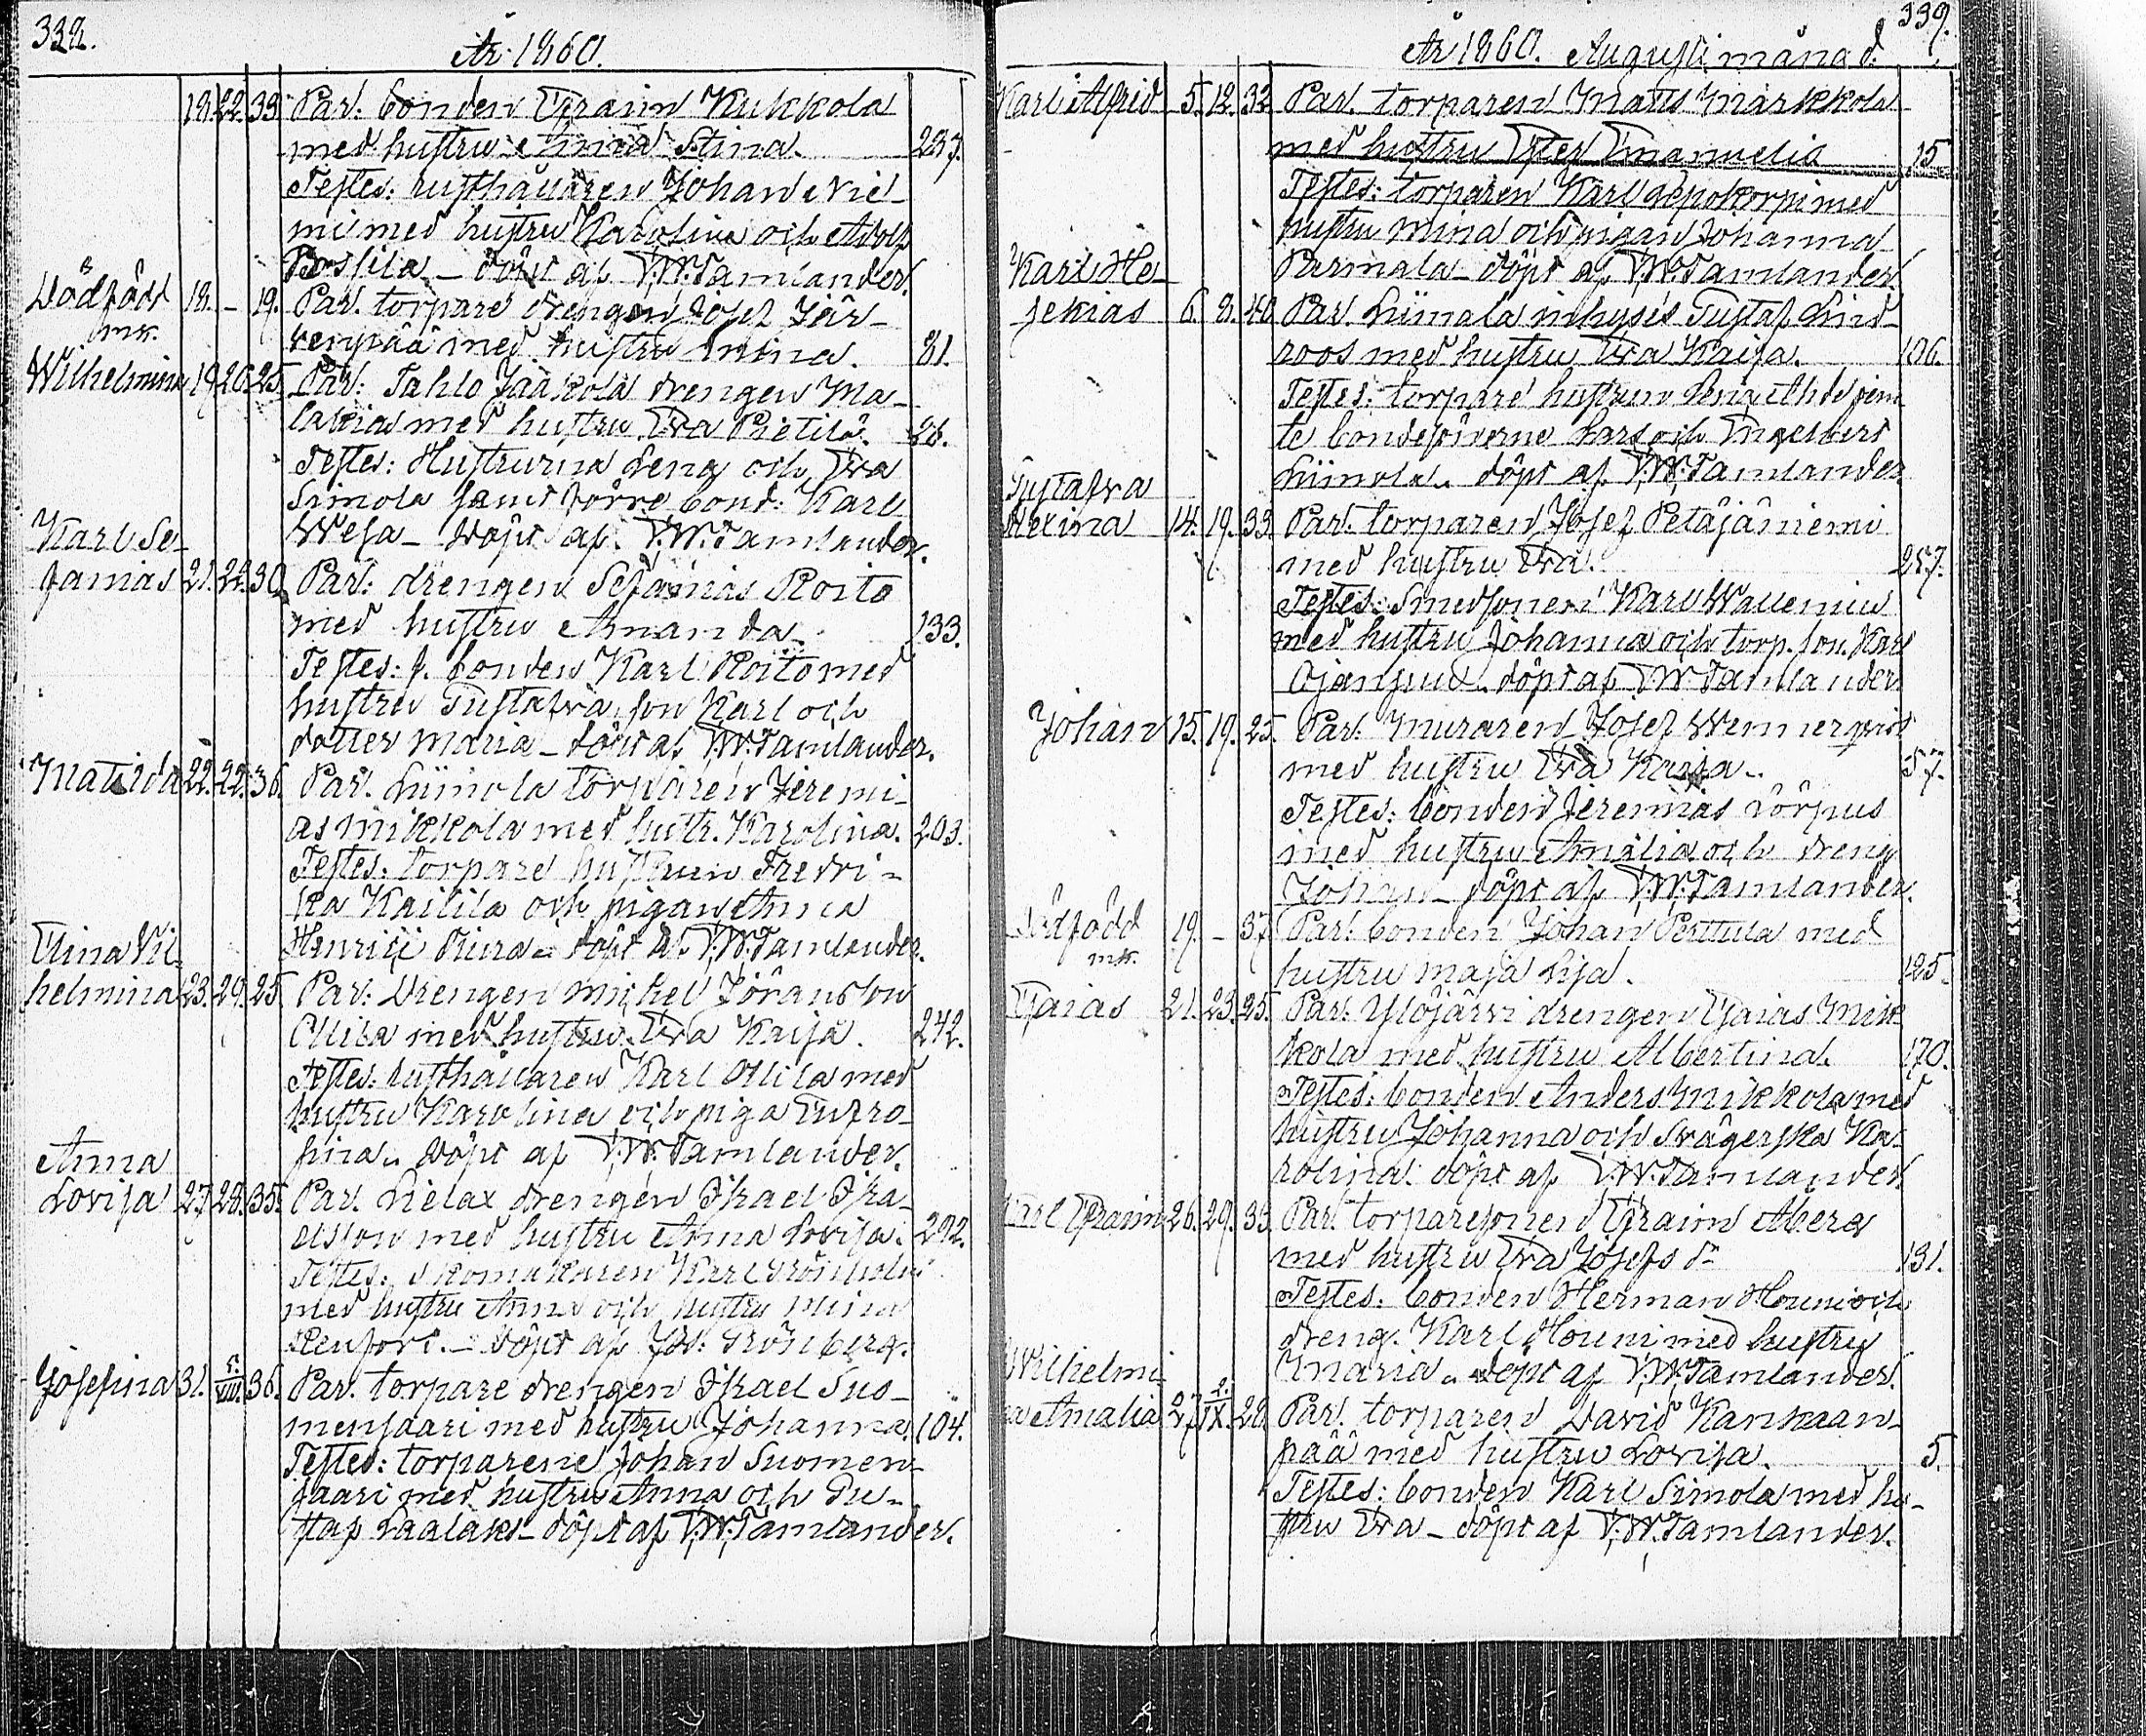 338.
År 1860.
18. 22. 33. Par: bonden Efraim Kukkola
med hustru Anna Stina. 237.
Testes: rusthållaren Johan Nie-
mi med hustru Karolina och Adolf
Rossila – döpt af F.W. Tamlander.
Dödfödd 18. – 19. Par. torpare drengen Josef Jär-
mk. venpää med hustru Mina. 81.
Wilhelmina 19. 26. 25. Par: Tahlo Jaakola drengen Ma-
lakias med hustru Eva Pietilä. 26.
Testes: Hustrurna Lena och Eva
Simola samt förre bond: Karl
Wesa – döpt af F.W. Tamlander.
Karl Se-
fanias 21. 22. 30. Par: drengen Sefanias Roito
med hustru Amanda. 133.
Testes: f. bonden Karl Roito med
hustru Gustafva, son Karl och
dotter Maria – döpt af F.W. Tamlander.
Matilda 22. 22. 36. Par. Liimola torparen Jeremi-
as Mikkola med hustr. Karolina. 203.
Testes: torpare hustrun Fredri-
ka Kailila och pigan Anna
Henrici – döpt af F.W. Tamlander.
Elina Vil-
helmina 23. 29. 25. Par: Drengen Michel Jöransson
Ollila med hustru Eva Kaisa. 242.
Testes: rusthållaren Karl Ollila med
hustru Karolina och piga Eufro-
sina. döpt af F.W. Tamlander.
Anna
Lovisa 27. 28. 35. Par. Lielax drengen Israel Isra-
elsson med hustru Anna Lovisa. 292.
Testes: Skomakaren Karl Grönholm
med hustru Anna och hustru Mina
Renfors. – döpt af Jos: Grönberg.
Josefina 31. 5. VIII. 36. Par. torpare drengen Israel Suo-
mensaari med hustru Johanna. 104.
Testes: torparene Johan Suomen-
saari med hustru Anna och Gu-
staf Laalaks – döpt af F.W. Tamlander.
339.
År 1860. Augusti månad.
Karl Alfrid 5. 12. 32. Par. torparen Matts Markkola
med hustru Ester Emanuelia 15
Testes: torparen Karl Sepokorpi med
hustru Mina och pigan Johanna
Parmala – döpt af F.W. Tamlander.
Karl He-
sekias 6. 8. 40. Par. Liimola inhyses Gustaf Lind-
roos med hustru Eva Kaisa. 196.
Testes: torpare hustrun Lena
te bondesönerne Karl och Engelbert
Liimola. döpt af F.W. Tamlander
Gustafva
Alexina 14. 19. 33. Par. torparen Josef Petäjäniemi
med hustru Eva. 257.
Testes: Smedsonen Karl Wallenius
med hustru Johanna och torp. son. Karl
Ojansuu. döpt af F.W. Tamlander
Johan 15. 19. 25. Par. Muraren Josef Wennerqvist
med hustru Eva Kaisa. 57.
Testes: bonden Jeremias Törpus
med hustru Amalia och dreng
Johan – döpt af F.W. Tamlander.
Dödfödd 19. – 37. Par: bonden Johan Perttula med
mk. hustru Maja Lisa. 125.
Esaias 21. 23. 25. Par. Ylöjärvi drengen Esaias Mik-
kola med hustru Albertina. 170.
Testes: bonden Anders Mikkola med
hustru Johanna och svägerska Ka-
rolina. döpt af F.W. Tamlander
Karl Efraim 26. 29. 33. Par. torparesonen Efraim Åberg
med hustru Eva Josefs dr 131.
Testes: bonden Herman Houni och
dreng. Karl Houni med hustru
Maria – döpt af F.W. Tamlander.
Wilhelmi-
na Amalia 27. 2. IX. 28. Par. torparen David Kankaan-
pää med hustru Lovisa. 5.
Testes: bonden Karl Simola med hu-
stru Eva – döpt af F.W. Tamlander.